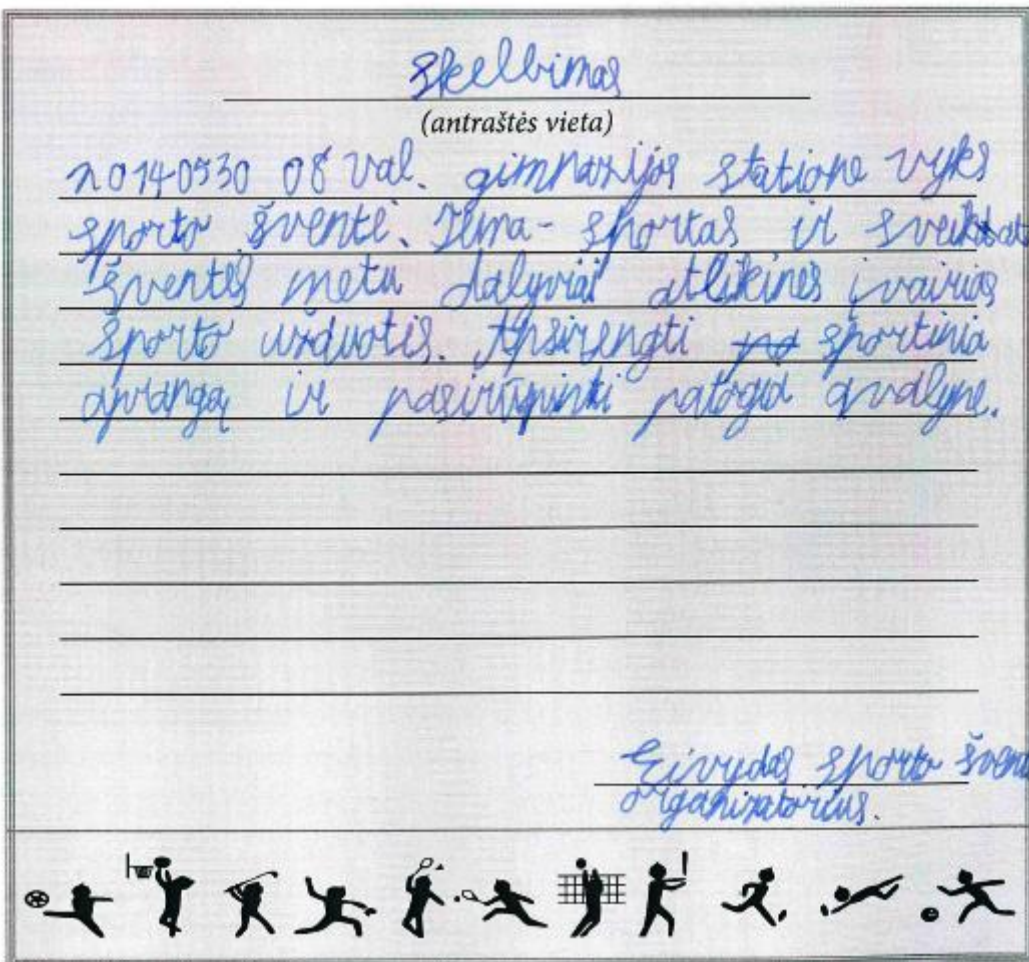 Skelbimas
(antraštės vieta)
20140530 08 val. gimnazijos statione vyks
sporto šventė. Tema- sportas ir sveikat
šventės metu dalyviai atlikinės įvairias
sporto užduotis. Apsirengti sportinia
aprangą ir pasirūpinti patogia avalyne.
Eivydas sporto švent
organizatorius.